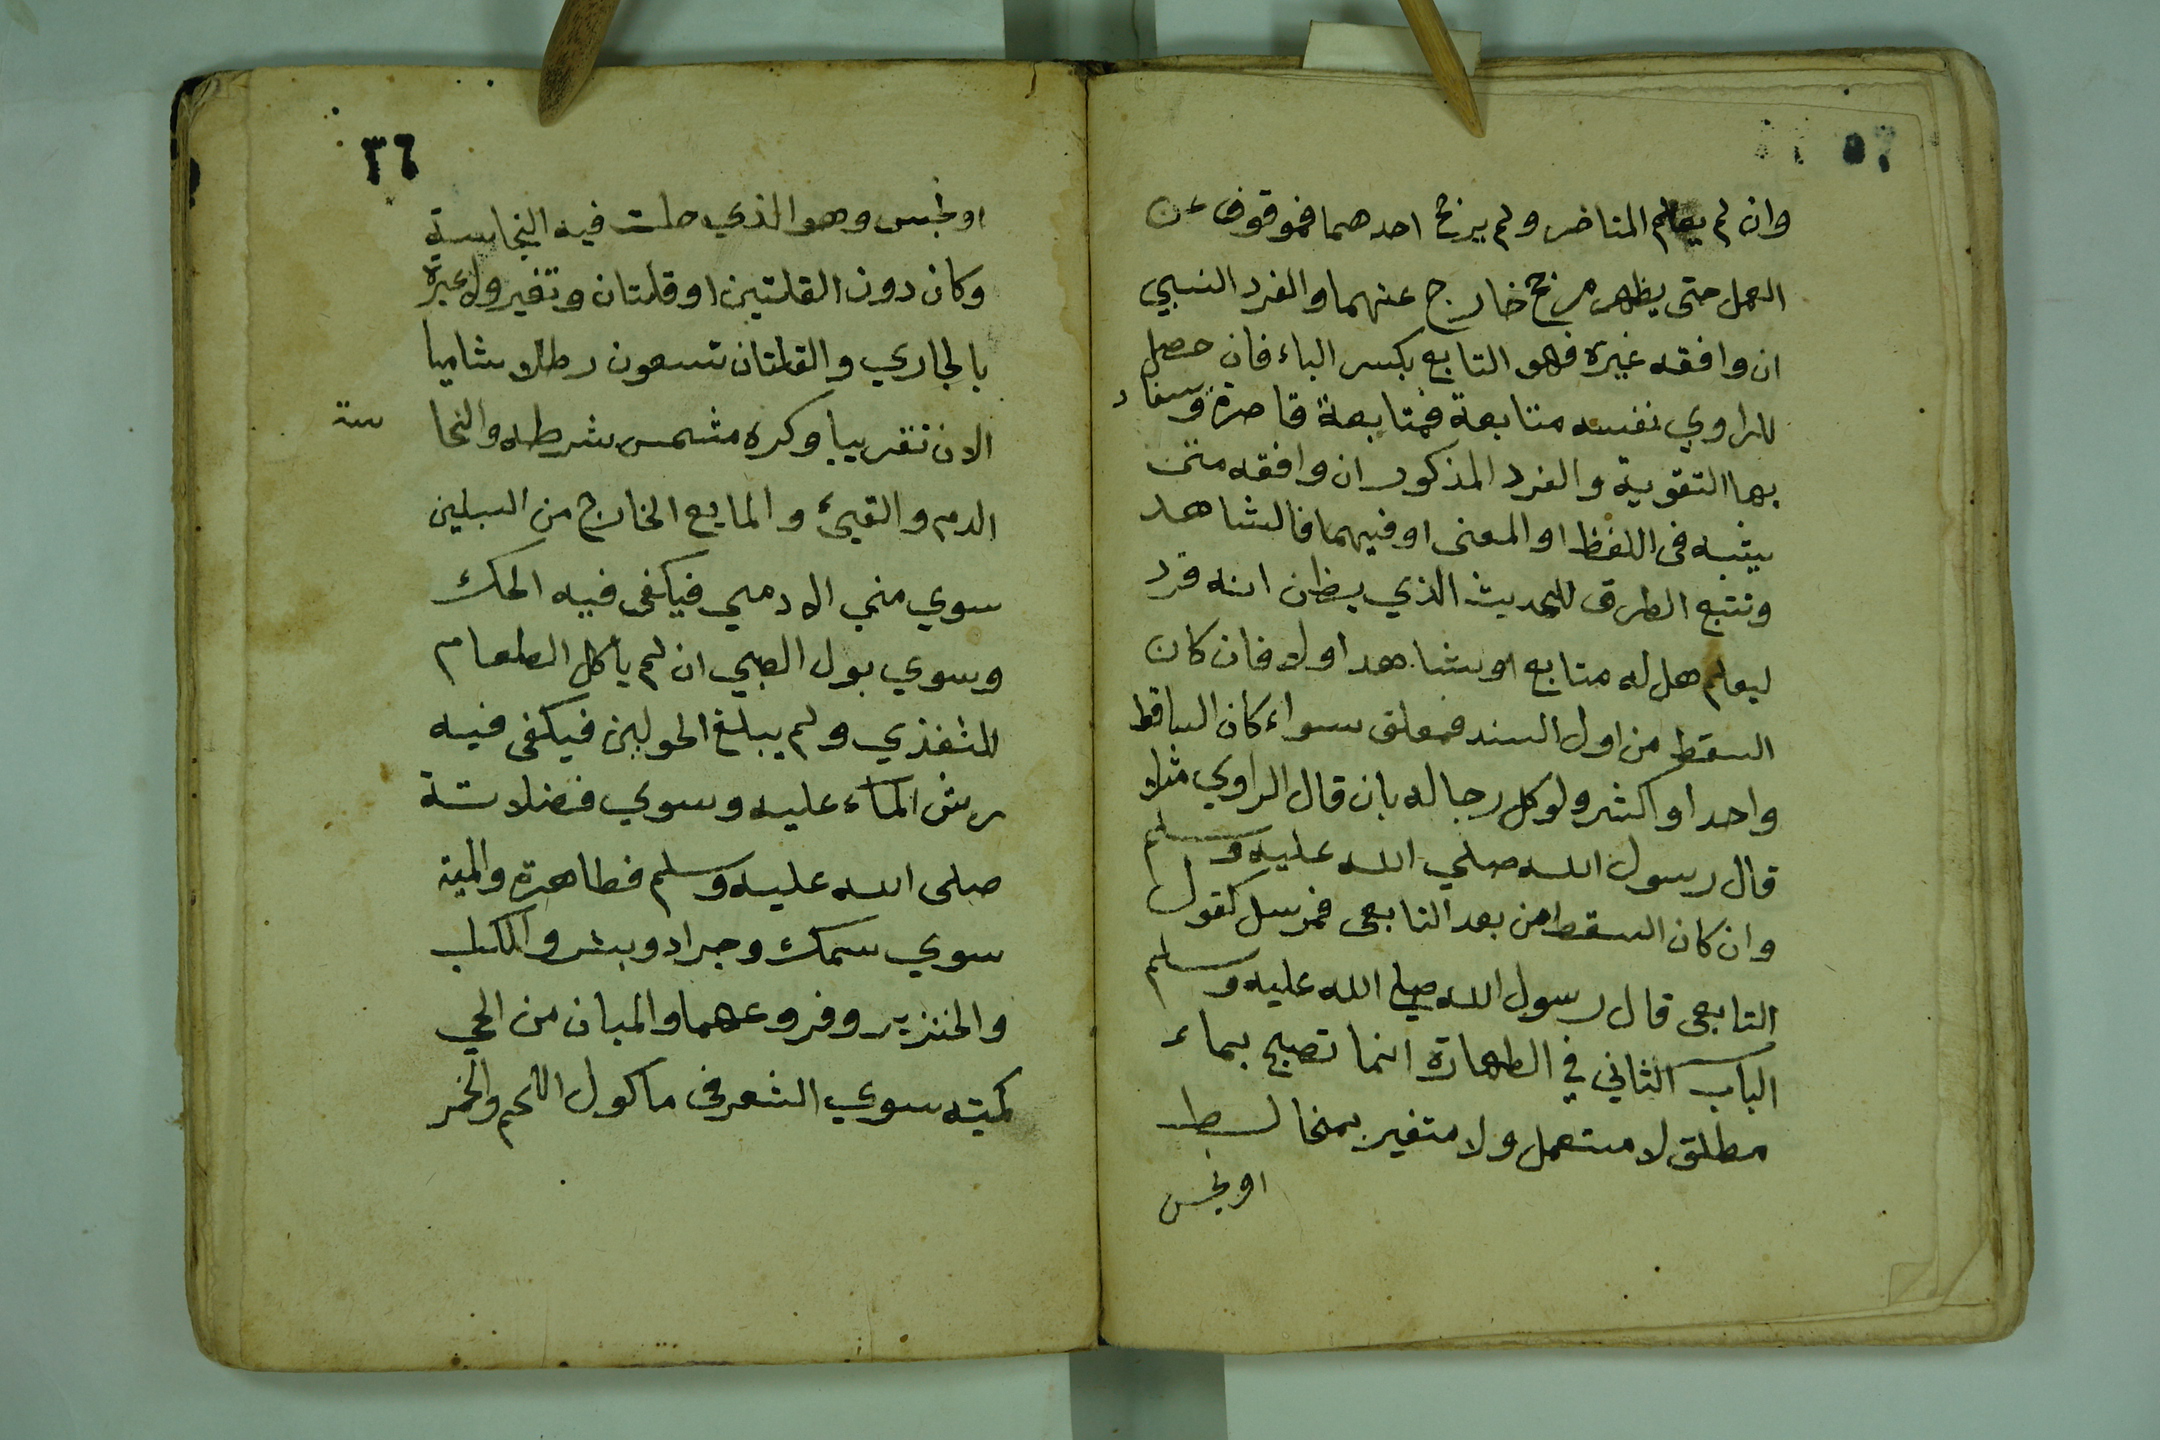 وان لم يعلم المتاخر ولم يرجح احدهما فموقوف عن
العمل حتى يظهر مرجح خارج عنهما والفرد النسبي
ان وافقه غيره فهو التابع بكسر الباء فان حصل
للراوي نفسه متابعة فمتابعة قاصرة وستفاد
بها التقوية والفرد المذكور ان وافقه متن
يشبه فى اللفظ او المعنى او فيهما فالشاهد
وتتبع الطرق للحديث الذي يظن انه فرد
ليعلم هل له متابع او شاهد اولا فان كان
السقط من اول السند فمعلق سواء كان الساقط
واحدا او اكثر ولو كل رجاله بان قال الراوي مثلا
قال رسول الله صلي الله عليه وسلم
وان كان السقط من بعد التابعى فمرسل كقول
التابعى قال رسول الله صلى الله عليه وسلم
الباب الثاني في الطهارة انما تصح بماء
مطلق لا مستعمل ولا متغير بمخالط
او نجس
٣٦
او نجس وهو الذي حلت فيه النجاسة
وكان دون القلتين او قلتان وتغير ولا عبرة
بالجاري والقلتان تسعون رطلا شاميا
الان تقريبا وكره مشمس بشرطه والنجاسة
الدم والقيئ والمايع الخارج من السبيلين
سوي مني الادمي فيكفى فيه الحك
وسوي بول الصبي ان لم ياكل الطعام
للتغذي ولم يبلغ الحولين فيكفى فيه
رش الماء عليه وسوي فضلاته
صلى الله عليه وسلم فطاهرة والميتة
سوي سمك وجراد وبشر والكلب
والخنزير وفروعهما والمبان من الحي
كميته سوي الشعر فى ماكول اللحم والخمر